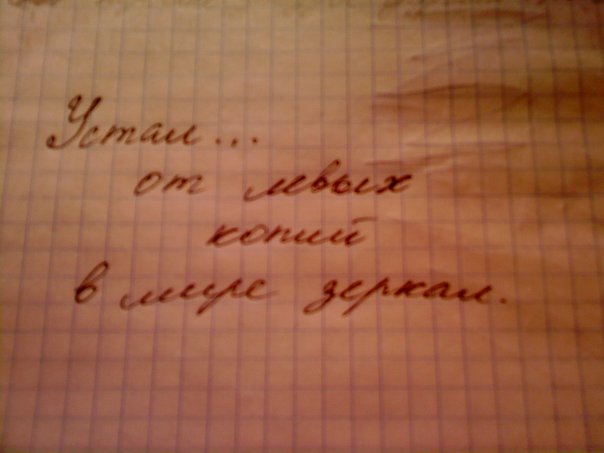 Устал...
от левых
копий
в мире зеркал.